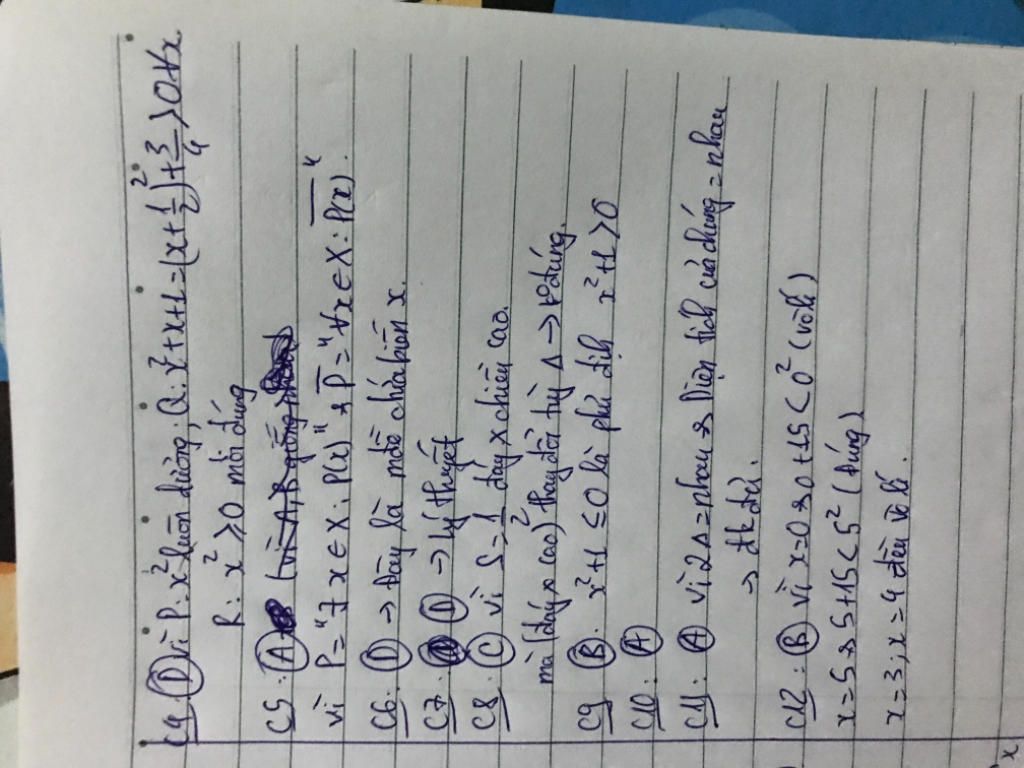 C4. D vì P: x² luôn dương; Q: x² + x + 1 = (x + 1/2)² + 3/4 > 0 ∀x
R: x² ≥ 0 mới đúng
C5. A
vì P = "∃ x ∈ X : P(x)" → P̅ = "∀x ∈ X : \overline{P(x)}".
C6. D → đây là mđề chứa biến x.
C7. D → lý thuyết
C8. C vì S = 1/2 đáy x chiều cao.
mà (đáy, cao) thay đổi tùy Δ → k° đúng.
C9 B. x² + 1 ≤ 0 là phủ định x² + 1 > 0
C10: A
C11: A vì 2Δ = nhau → Diện tích của chúng = nhau
→ đk đủ.
C12: B vì x = 0 → 0 + 15 < 0² (vô lí)
x = 5 → 5 + 15 < 5² (đúng)
x = 3; x = 4 đều vô lí.
x